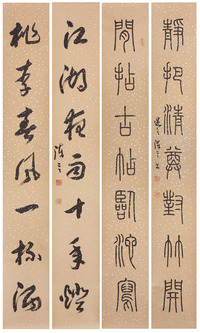 靜把清尊對竹開
閒拈古帖臨池寫
江湖夜雨十年燈
桃李春風一杯酒